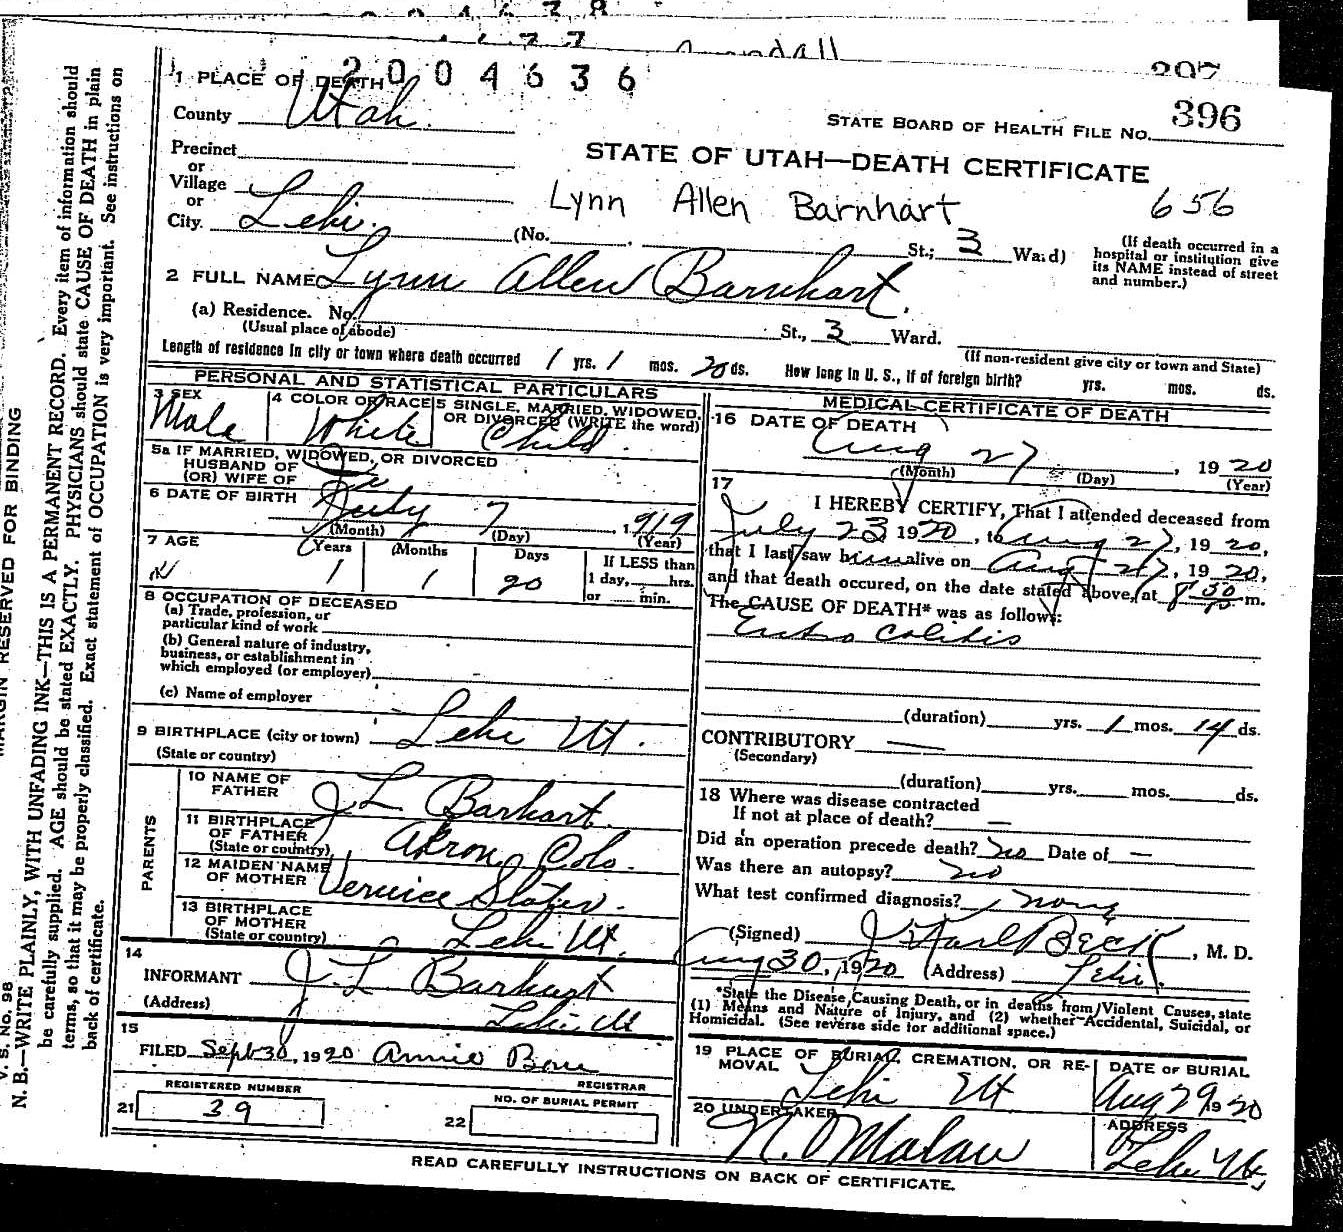 2004636
396
1 PLACE OF DEATH
STATE BOARD OF HEALTH FILE NO.
County Utah
STATE OF UTAH—DEATH CERTIFICATE
Precinct
or
Village
or
City. Lehi.
Lynn Allen Barnhart
656
(No. St.; 3 Ward)
(If death occurred in a
hospital or institution give
its NAME instead of street
and number.)
2 FULL NAME Lynn Allen Barnhart.
(a) Residence. No.
(Usual place of abode)
St., 3 Ward.
(If non-resident give city or town and State)
Length of residence in city or town where death occurred 1 yrs. 1 mos. 20 ds. How long in U. S., if of foreign birth? yrs. mos. ds.
PERSONAL AND STATISTICAL PARTICULARS
3 SEX
Male
4 COLOR OR RACE
White
5 SINGLE, MARRIED, WIDOWED,
OR DIVORCED (WRITE the word)
Child
5a IF MARRIED, WIDOWED, OR DIVORCED
HUSBAND OF
(OR) WIFE OF
6 DATE OF BIRTH
July 7 1919
(Month) (Day) (Year)
7 AGE
Years Months Days
1 1 20
If LESS than
1 day, hrs.
or min.
8 OCCUPATION OF DECEASED
(a) Trade, profession, or
particular kind of work
(b) General nature of industry,
business, or establishment in
which employed (or employer)
(c) Name of employer
9 BIRTHPLACE (city or town) Lehi Ut.
(State or country)
PARENTS
10 NAME OF
FATHER
J L Barhart.
11 BIRTHPLACE
OF FATHER
(State or country)
Akron, Colo.
12 MAIDEN NAME
OF MOTHER
Vernice Slater.
13 BIRTHPLACE
OF MOTHER
(State or country)
Lehi Ut.
14
INFORMANT J. L Barhart
(Address) Lehi Ut
15
FILED Sept 30, 1920 Annie
REGISTRAR
REGISTERED NUMBER
21 39
NO. OF BURIAL PERMIT
22
MEDICAL CERTIFICATE OF DEATH
16 DATE OF DEATH
Aug 27, 1920
(Month) (Day) (Year)
17
I HEREBY CERTIFY, That I attended deceased from
July 23, 1920, to Aug 27, 1920,
that I last saw him alive on Aug 27, 1920,
and that death occured, on the date stated above, at 8 30 m.
The CAUSE OF DEATH* was as follows:
Entro Colitis
(duration) yrs. 1 mos. 14 ds.
CONTRIBUTORY —
(Secondary)
(duration) yrs. mos. ds.
18 Where was disease contracted
If not at place of death? —
Did an operation precede death? no Date of —
Was there an autopsy? no
What test confirmed diagnosis? none
(Signed) J Karl Beck, M. D.
Aug 30, 1920 (Address) Lehi
*State the Disease Causing Death, or in deaths from Violent Causes, state
(1) Means and Nature of Injury, and (2) whether Accidental, Suicidal, or
Homicidal. (See reverse side for additional space.)
19 PLACE OF BURIAL, CREMATION, OR RE-
MOVAL
Lehi Ut.
DATE OF BURIAL
Aug 29 1920
20 UNDERTAKER
ADDRESS
Lehi Ut,
READ CAREFULLY INSTRUCTIONS ON BACK OF CERTIFICATE.
MARGIN RESERVED FOR BINDING
V. S. No. 98
N. B.—WRITE PLAINLY, WITH UNFADING INK—THIS IS A PERMANENT RECORD. Every item of information should
be carefully supplied. AGE should be stated EXACTLY. PHYSICIANS should state CAUSE OF DEATH in plain
terms, so that it may be properly classified. Exact statement of OCCUPATION is very important. See instructions on
back of certificate.